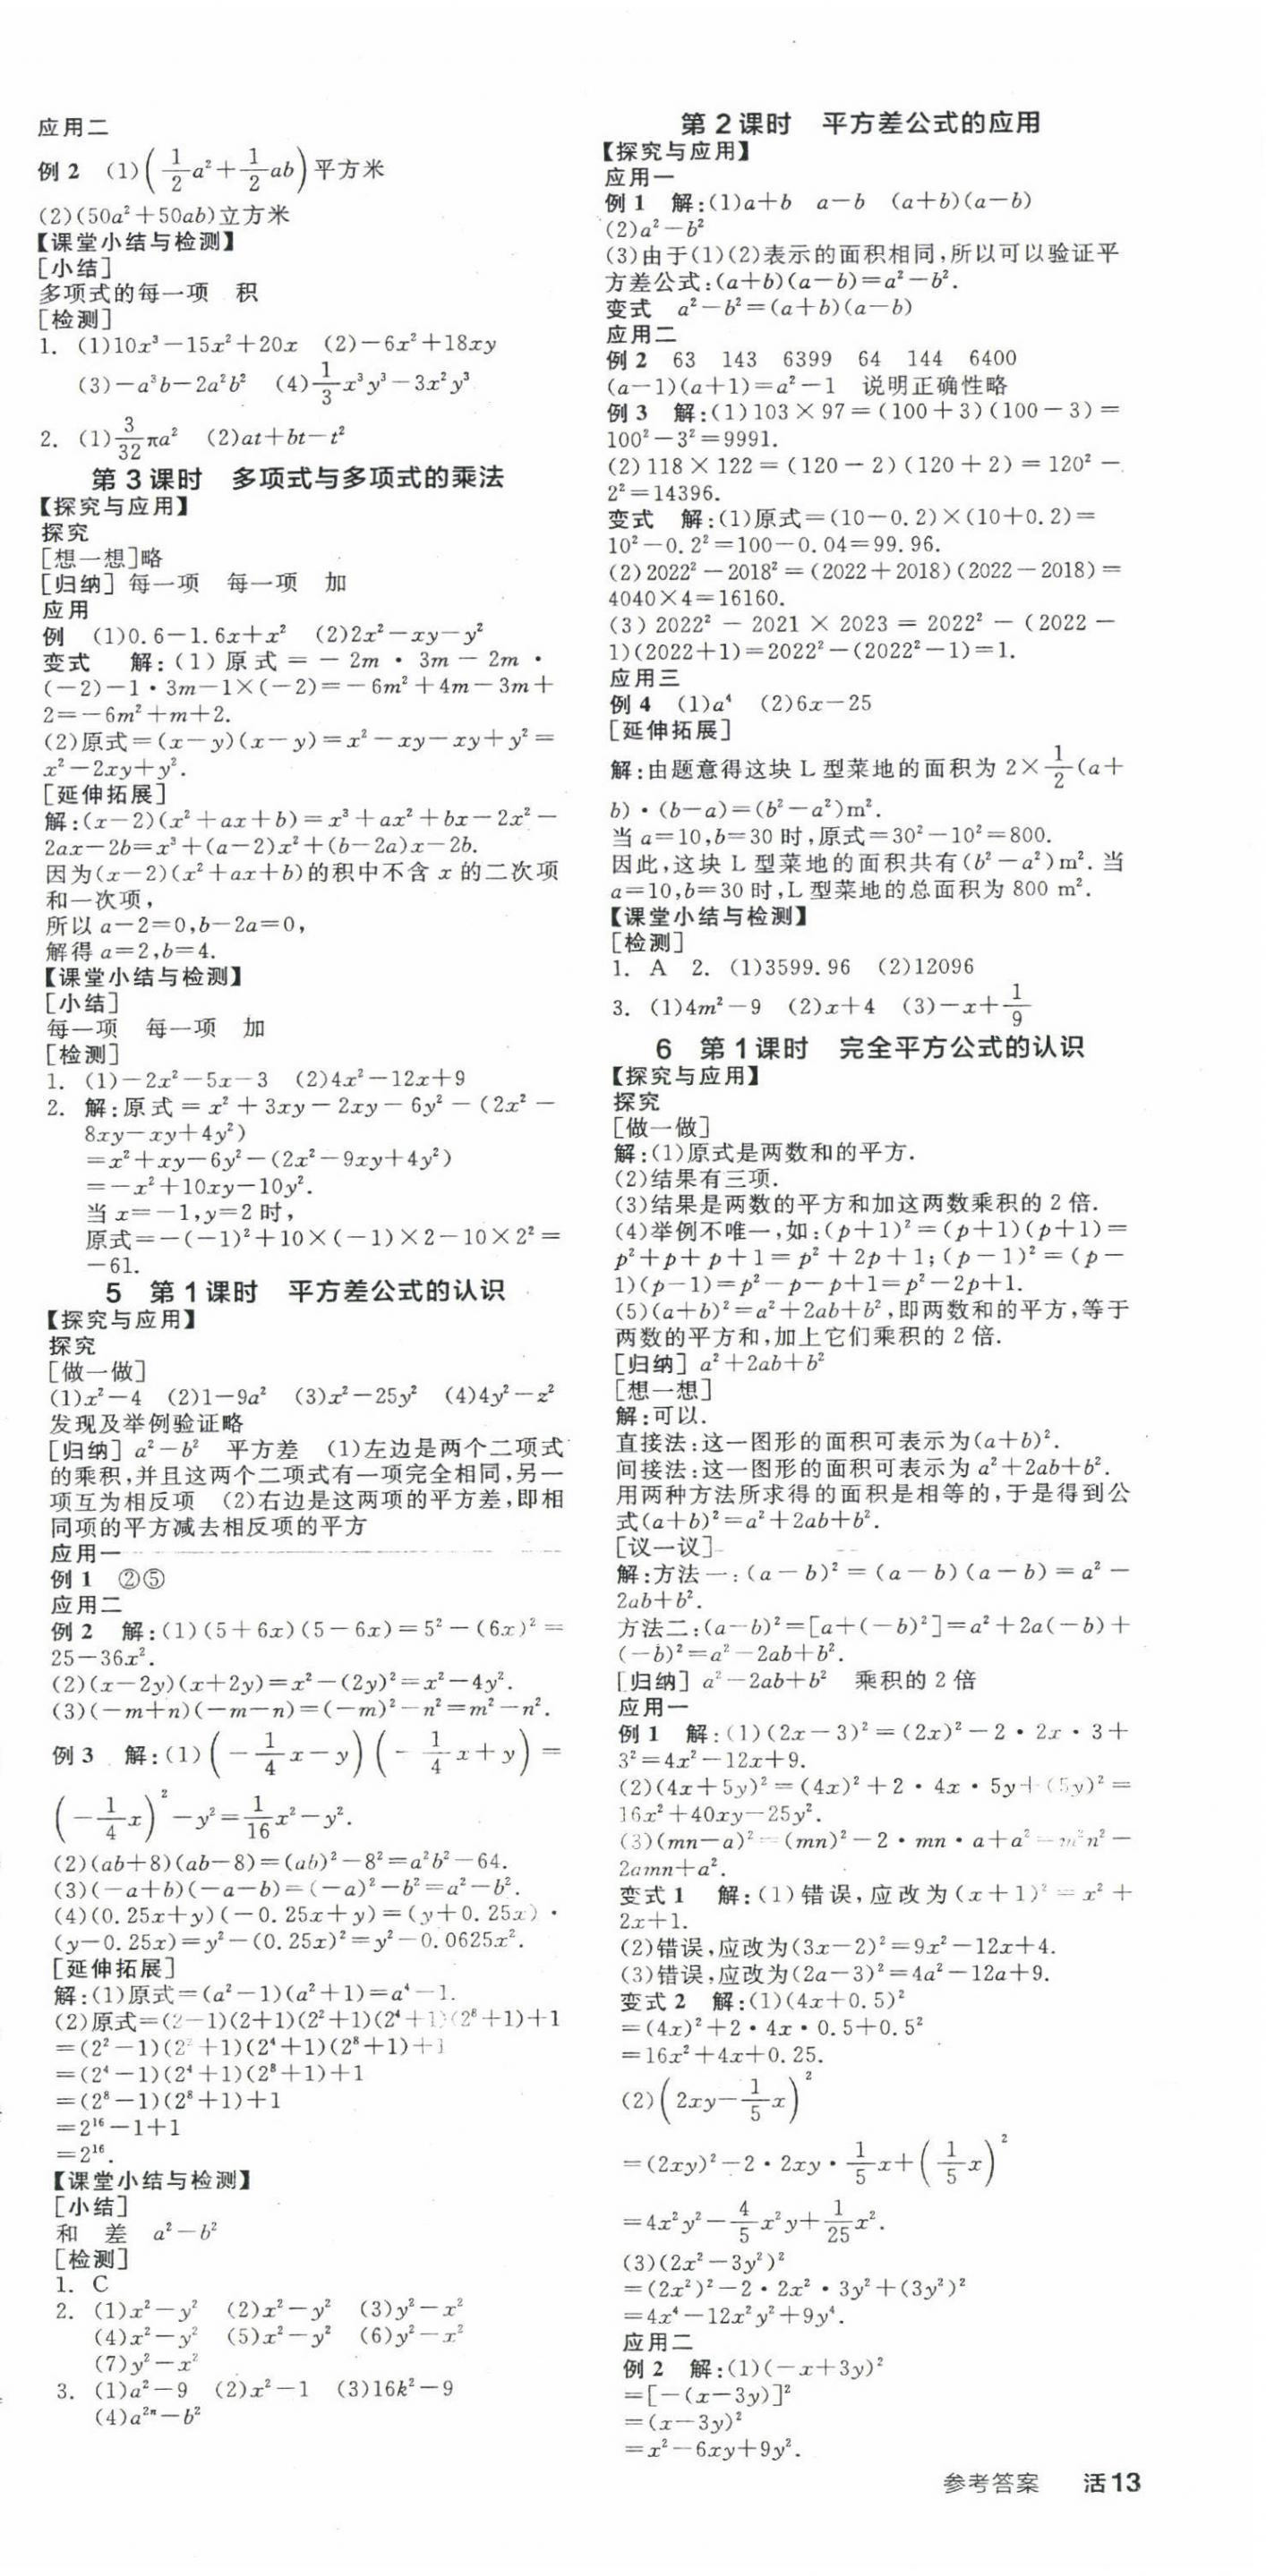 应用二
例2 (1)(1/2a²+1/2ab)平方米
(2)(50a²+50ab)立方米
【课堂小结与检测】
[小结]
多项式的每一项 积
[检测]
1. (1)10x³-15x²+20x (2)-6x²+18xy
(3)-a³b-2a²b² (4)1/3x³y³-3x²y³
2. (1)3/32πa² (2)at+bt-t²
第3课时 多项式与多项式的乘法
【探究与应用】
探究
[想一想]略
[归纳] 每一项 每一项 加
应用
例 (1)0.6-1.6x+x² (2)2x²-xy-y²
变式 解:(1)原式=-2m·3m-2m·
(-2)-1·3m-1×(-2)=-6m²+4m-3m+
2=-6m²+m+2.
(2)原式=(x-y)(x-y)=x²-xy-xy+y²=
x²-2xy+y².
[延伸拓展]
解:(x-2)(x²+ax+b)=x³+ax²+bx-2x²-
2ax-2b=x³+(a-2)x²+(b-2a)x-2b.
因为(x-2)(x²+ax+b)的积中不含x的二次项
和一次项,
所以a-2=0,b-2a=0,
解得a=2,b=4.
【课堂小结与检测】
[小结]
每一项 每一项 加
[检测]
1. (1)-2x²-5x-3 (2)4x²-12x+9
2. 解:原式=x²+3xy-2xy-6y²-(2x²-
8xy-xy+4y²)
=x²+xy-6y²-(2x²-9xy+4y²)
=-x²+10xy-10y².
当x=-1,y=2时,
原式=-(-1)²+10×(-1)×2-10×2²=
-61.
5 第1课时 平方差公式的认识
【探究与应用】
探究
[做一做]
(1)x²-4 (2)1-9a² (3)x²-25y² (4)4y²-z²
发现及举例验证略
[归纳] a²-b² 平方差 (1)左边是两个二项式
的乘积,并且这两个二项式有一项完全相同,另一
项互为相反项 (2)右边是这两项的平方差,即相
同项的平方减去相反项的平方
应用一
例1 ②⑤
应用二
例2 解:(1)(5+6x)(5-6x)=5²-(6x)²=
25-36x².
(2)(x-2y)(x+2y)=x²-(2y)²=x²-4y².
(3)(-m+n)(-m-n)=(-m)²-n²=m²-n².
例3 解:(1)(-1/4x-y)(-1/4x+y)=
(-1/4x)²-y²=1/16x²-y².
(2)(ab+8)(ab-8)=(ab)²-8²=a²b²-64.
(3)(-a+b)(-a-b)=(-a)²-b²=a²-b².
(4)(0.25x+y)(-0.25x+y)=(y+0.25x)·
(y-0.25x)=y²-(0.25x)²=y²-0.0625x².
[延伸拓展]
解:(1)原式=(a²-1)(a²+1)=a⁴-1.
(2)原式=(2-1)(2+1)(2²+1)(2⁴+1)(2⁸+1)+1
=(2²-1)(2²+1)(2⁴+1)(2⁸+1)+1
=(2⁴-1)(2⁴+1)(2⁸+1)+1
=(2⁸-1)(2⁸+1)+1
=2¹⁶-1+1
=2¹⁶.
【课堂小结与检测】
[小结]
和 差 a²-b²
[检测]
1. C
2. (1)x²-y² (2)x²-y² (3)y²-x²
(4)x²-y² (5)x²-y² (6)y²-x²
(7)y²-x²
3. (1)a²-9 (2)x²-1 (3)16k²-9
(4)a²ⁿ-b²
第2课时 平方差公式的应用
【探究与应用】
应用一
例1 解:(1)a+b a-b (a+b)(a-b)
(2)a²-b²
(3)由于(1)(2)表示的面积相同,所以可以验证平
方差公式:(a+b)(a-b)=a²-b².
变式 a²-b²=(a+b)(a-b)
应用二
例2 63 143 6399 64 144 6400
(a-1)(a+1)=a²-1 说明正确性略
例3 解:(1)103×97=(100+3)(100-3)=
100²-3²=9991.
(2)118×122=(120-2)(120+2)=120²-
2²=14396.
变式 解:(1)原式=(10-0.2)×(10+0.2)=
10²-0.2²=100-0.04=99.96.
(2)2022²-2018²=(2022+2018)(2022-2018)=
4040×4=16160.
(3)2022²-2021×2023=2022²-(2022-
1)(2022+1)=2022²-(2022²-1)=1.
应用三
例4 (1)a⁴ (2)6x-25
[延伸拓展]
解:由题意得这块L型菜地的面积为2×1/2(a+
b)·(b-a)=(b²-a²)m².
当a=10,b=30时,原式=30²-10²=800.
因此,这块L型菜地的面积共有(b²-a²)m².当
a=10,b=30时,L型菜地的总面积为800 m².
【课堂小结与检测】
[检测]
1. A 2. (1)3599.96 (2)12096
3. (1)4m²-9 (2)x+4 (3)-x+1/9
6 第1课时 完全平方公式的认识
【探究与应用】
探究
[做一做]
解:(1)原式是两数和的平方.
(2)结果有三项.
(3)结果是两数的平方和加这两数乘积的2倍.
(4)举例不唯一,如:(p+1)²=(p+1)(p+1)=
p²+p+p+1=p²+2p+1;(p-1)²=(p-
1)(p-1)=p²-p-p+1=p²-2p+1.
(5)(a+b)²=a²+2ab+b²,即两数和的平方,等于
两数的平方和,加上它们乘积的2倍.
[归纳] a²+2ab+b²
[想一想]
解:可以.
直接法:这一图形的面积可表示为(a+b)².
间接法:这一图形的面积可表示为a²+2ab+b².
用两种方法所求得的面积是相等的,于是得到公
式(a+b)²=a²+2ab+b².
[议一议]
解:方法一:(a-b)²=(a-b)(a-b)=a²-
2ab+b².
方法二:(a-b)²=[a+(-b)²]=a²+2a(-b)+
(-b)²=a²-2ab+b².
[归纳] a²-2ab+b² 乘积的2倍
应用一
例1 解:(1)(2x-3)²=(2x)²-2·2x·3+
3²=4x²-12x+9.
(2)(4x+5y)²=(4x)²+2·4x·5y+(5y)²=
16x²+40xy-25y².
(3)(mn-a)²=(mn)²-2·mn·a+a²=m²n²-
2amn+a².
变式1 解:(1)错误,应改为(x+1)²=x²+
2x+1.
(2)错误,应改为(3x-2)²=9x²-12x+4.
(3)错误,应改为(2a-3)²=4a²-12a+9.
变式2 解:(1)(4x+0.5)²
=(4x)²+2·4x·0.5+0.5²
=16x²+4x+0.25.
(2)(2xy-1/5x)²
=(2xy)²-2·2xy·1/5x+(1/5x)²
=4x²y²-4/5x²y+1/25x².
(3)(2x²-3y²)²
=(2x²)²-2·2x²·3y²+(3y²)²
=4x⁴-12x²y²+9y⁴.
应用二
例2 解:(1)(-x+3y)²
=[-(x-3y)]²
=(x-3y)²
=x²-6xy+9y².
参考答案 活13